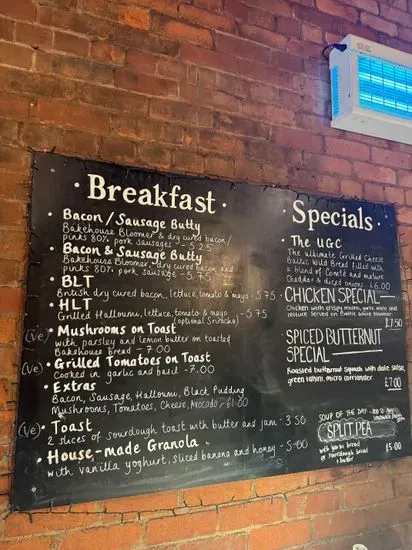 Breakfast
Bacon / Sausage Butty
Bakehouse Bloomer & dry cured bacon /
pinks 80% pork sausages - 5.25
Bacon & Sausage Butty
Bakehouse Bloomer, dry cured bacon and
pinks 80% pork sausages - 5.75
BLT
British dry cured bacon, lettuce, tomato & mayo - 5.75
HLT
Grilled Halloumi, lettuce, tomato & mayo - 5.75
(optional Sriracha)
(Ve) Mushrooms on Toast
with parsley and lemon butter on toasted
Bakehouse bread - 7.00
(Ve) Grilled Tomatoes on Toast
Cooked in garlic and basil - 7.00
Extras
Bacon, Sausage, Halloumi, Black Pudding
Mushrooms, Tomatoes, Cheese, Avocado - £1.00
(Ve) Toast
2 slices of sourdough toast with butter and jam - 3.50
House-made Granola
with vanilla yoghurt, sliced banana and honey - 5.00
Specials
The UGC
The ultimate Grilled Cheese
Baltic Wild Bread filled with
a blend of Comté and mature
Cheddar & diced onions £6.00
CHICKEN SPECIAL
Chicken with crispy onions, garlic mayo and
lettuce served on Bloomer
£7.50
SPICED BUTTERNUT
SPECIAL
Roasted butternut squash with date salsa,
green tahini, micro coriander
£7.00
SOUP OF THE DAY
SPLIT PEA
with bread
or sourdough bread
& butter
£5.00